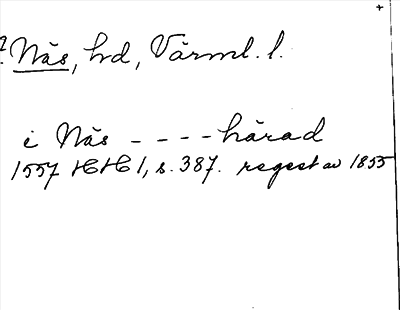 Näs, hrd, Värml. l.
i Näs - - - - härad
1557 HH 1, s. 387. regest av 1855